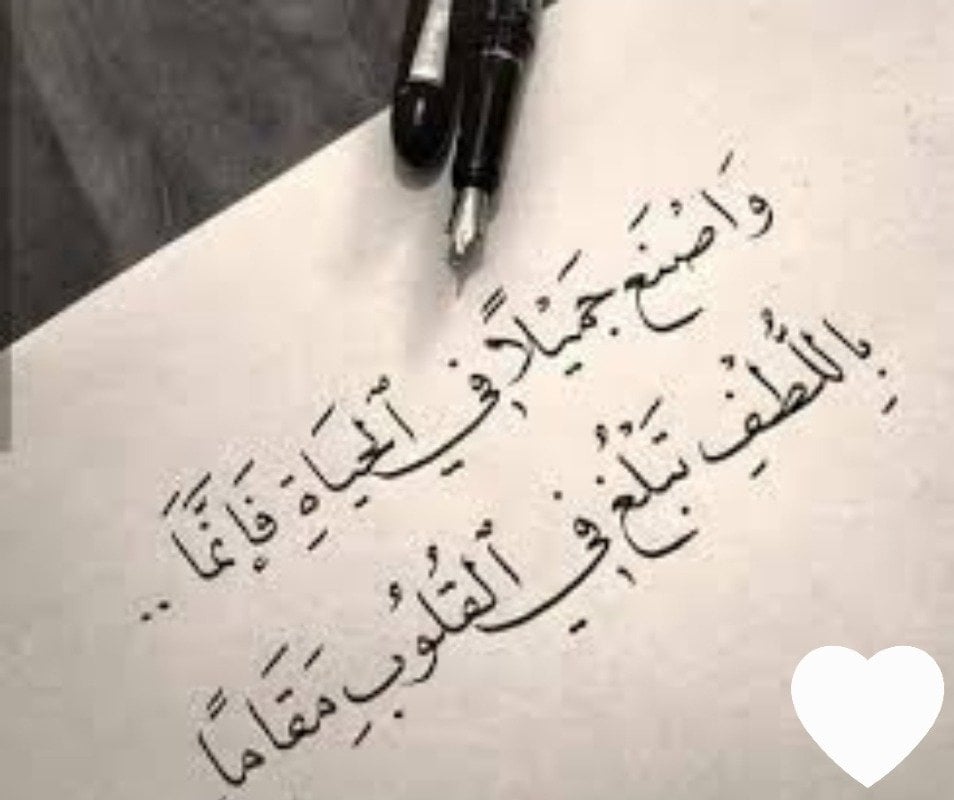 وَاصْنَع جَمَيْلاً فِي ٱلْحَيَاةِ فَإِنَّمَاَ ..
بِاللُّطْفِ تَبْلُغُ فِي ٱلْقُلُوبِ مَقَامًا